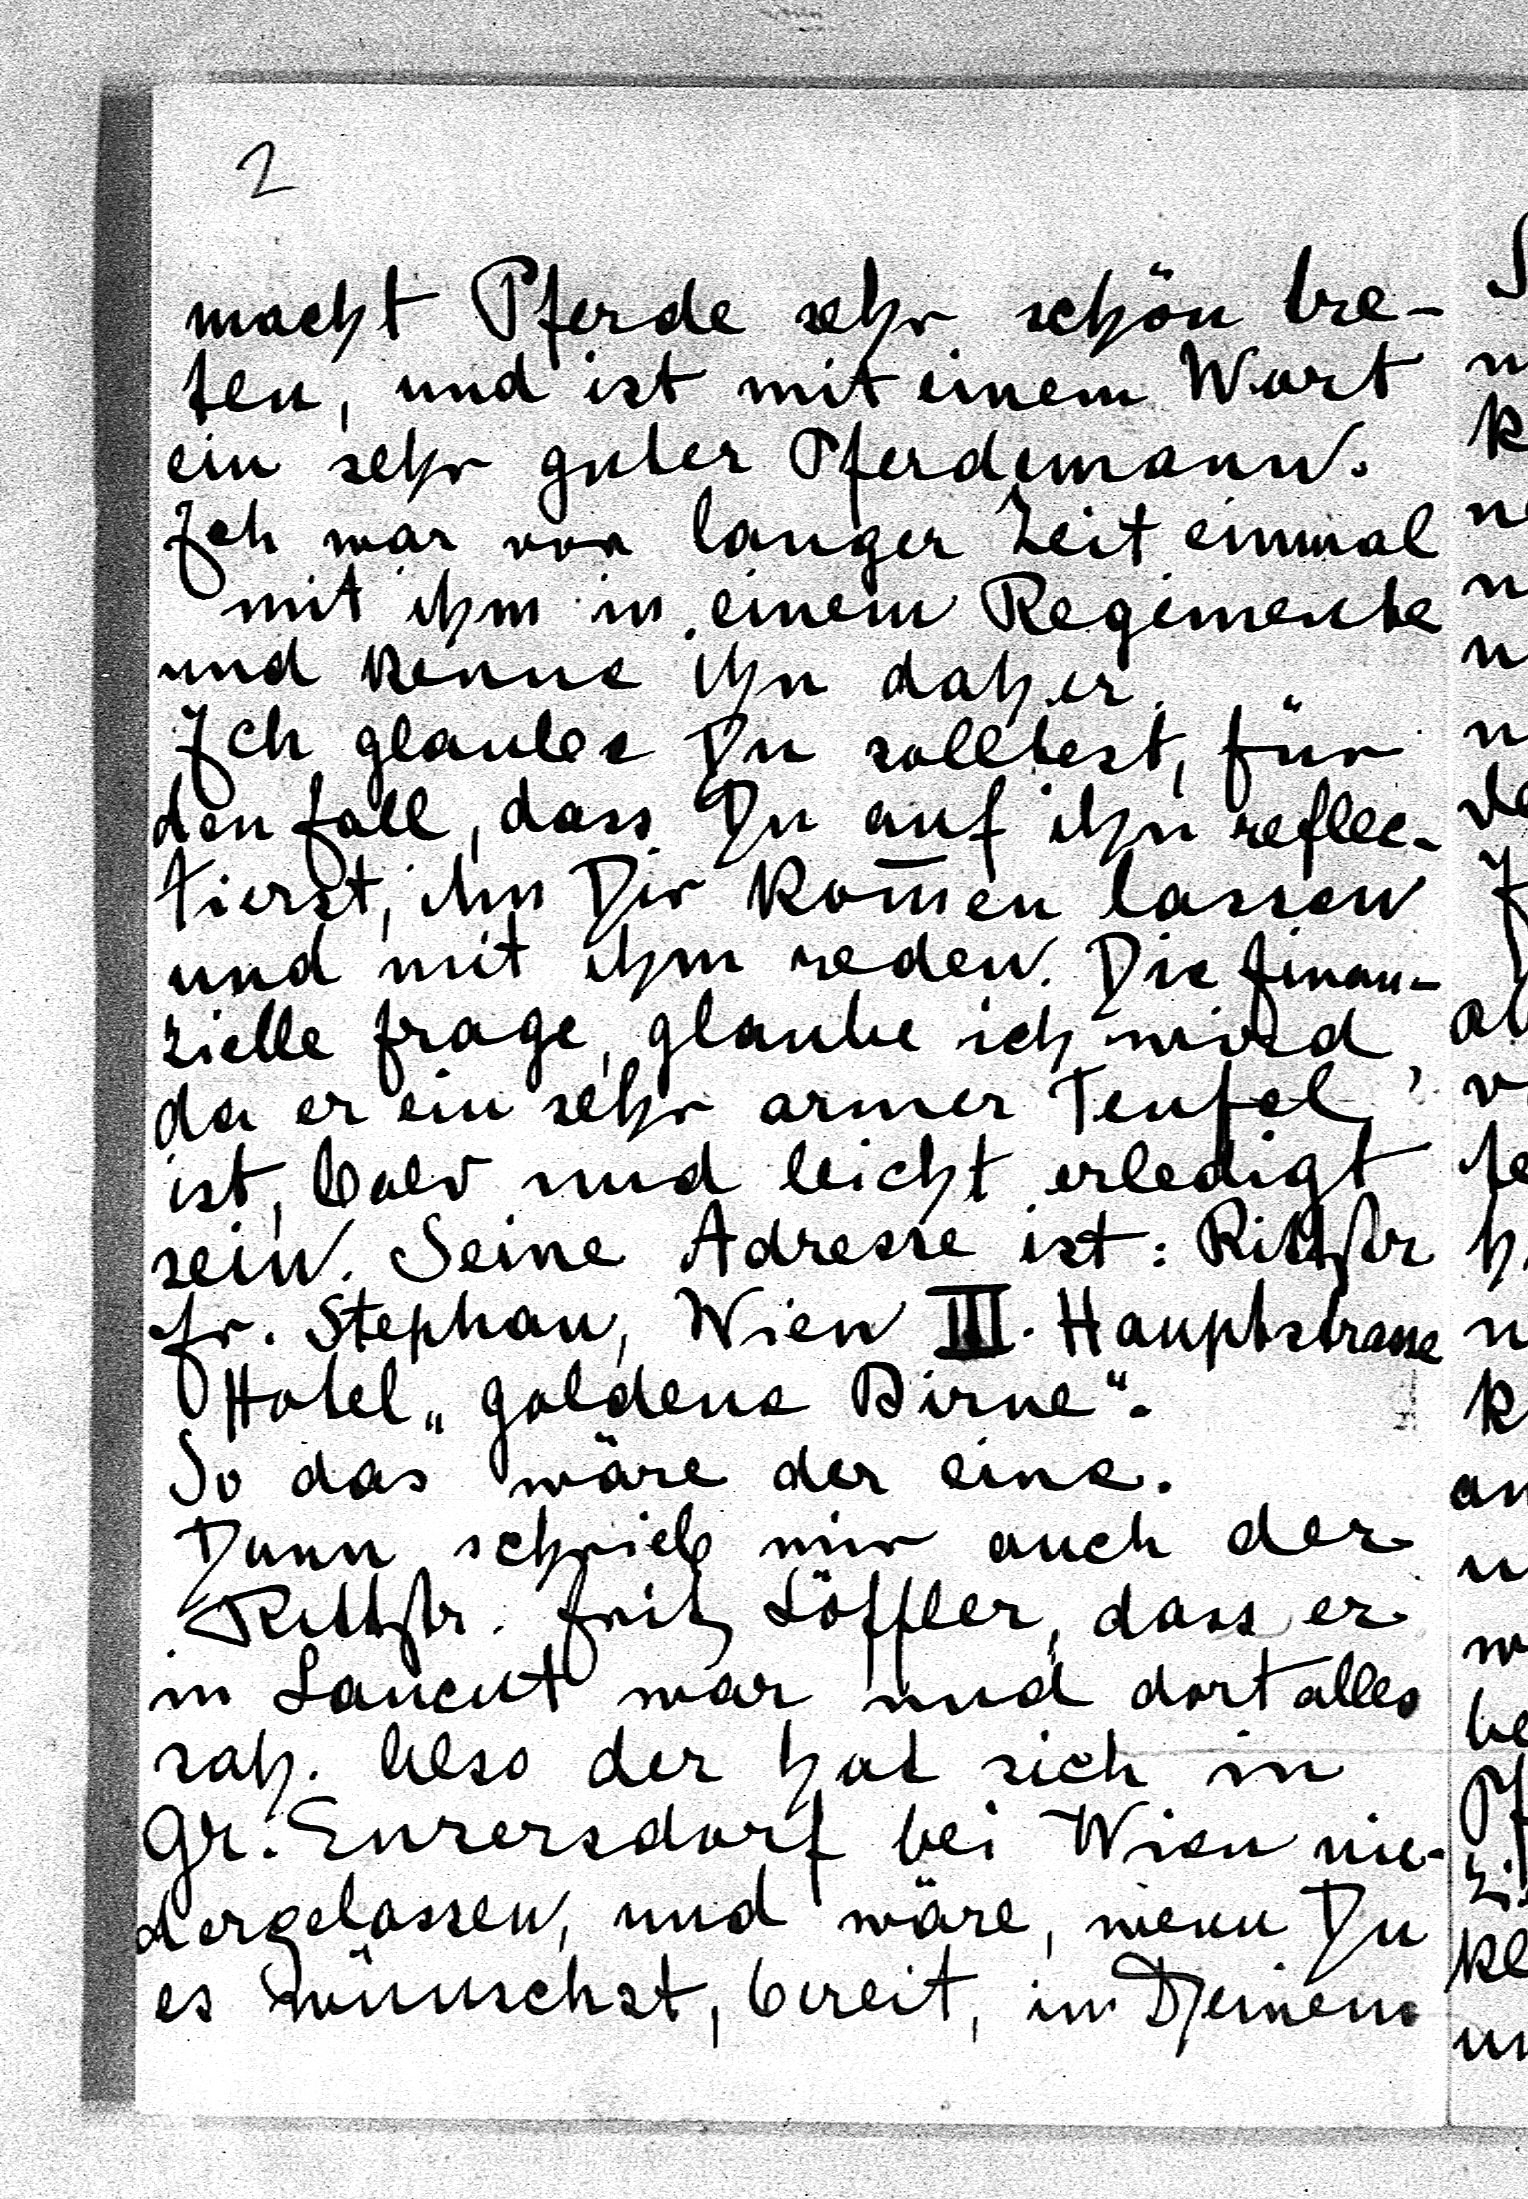 2
macht Pferde sehr schön tre-
ten, und ist mit einem Wort
ein sehr guter Pferdemann.
Ich war vor langer Zeit einmal
mit ihm in einem Regimente
und kenne ihn daher.
Ich glaube Du solltest, für
den Fall, dass Du auf ihn reflec-
tierst, ihn Dir kom̄en lassen
und mit ihm reden. Die finan-
zielle Frage, glaube ich wird,
da er ein sehr armer Teufel
ist, bald und leicht erledigt
sein. Seine Adresse ist: Rittstr
Fr. Stephan, Wien III. Hauptstrasse
Hotel „goldene Birne".
So das wäre der eine.
Dann schrieb mir auch der
Rittstr. Fritz Löffler, dass er
in Lancut war und dort alles
sah. Also der hat sich in
Gr. Enzersdorf bei Wien nie-
dergelassen, und wäre, wenn Du
es wünschst, bereit, in Deinem